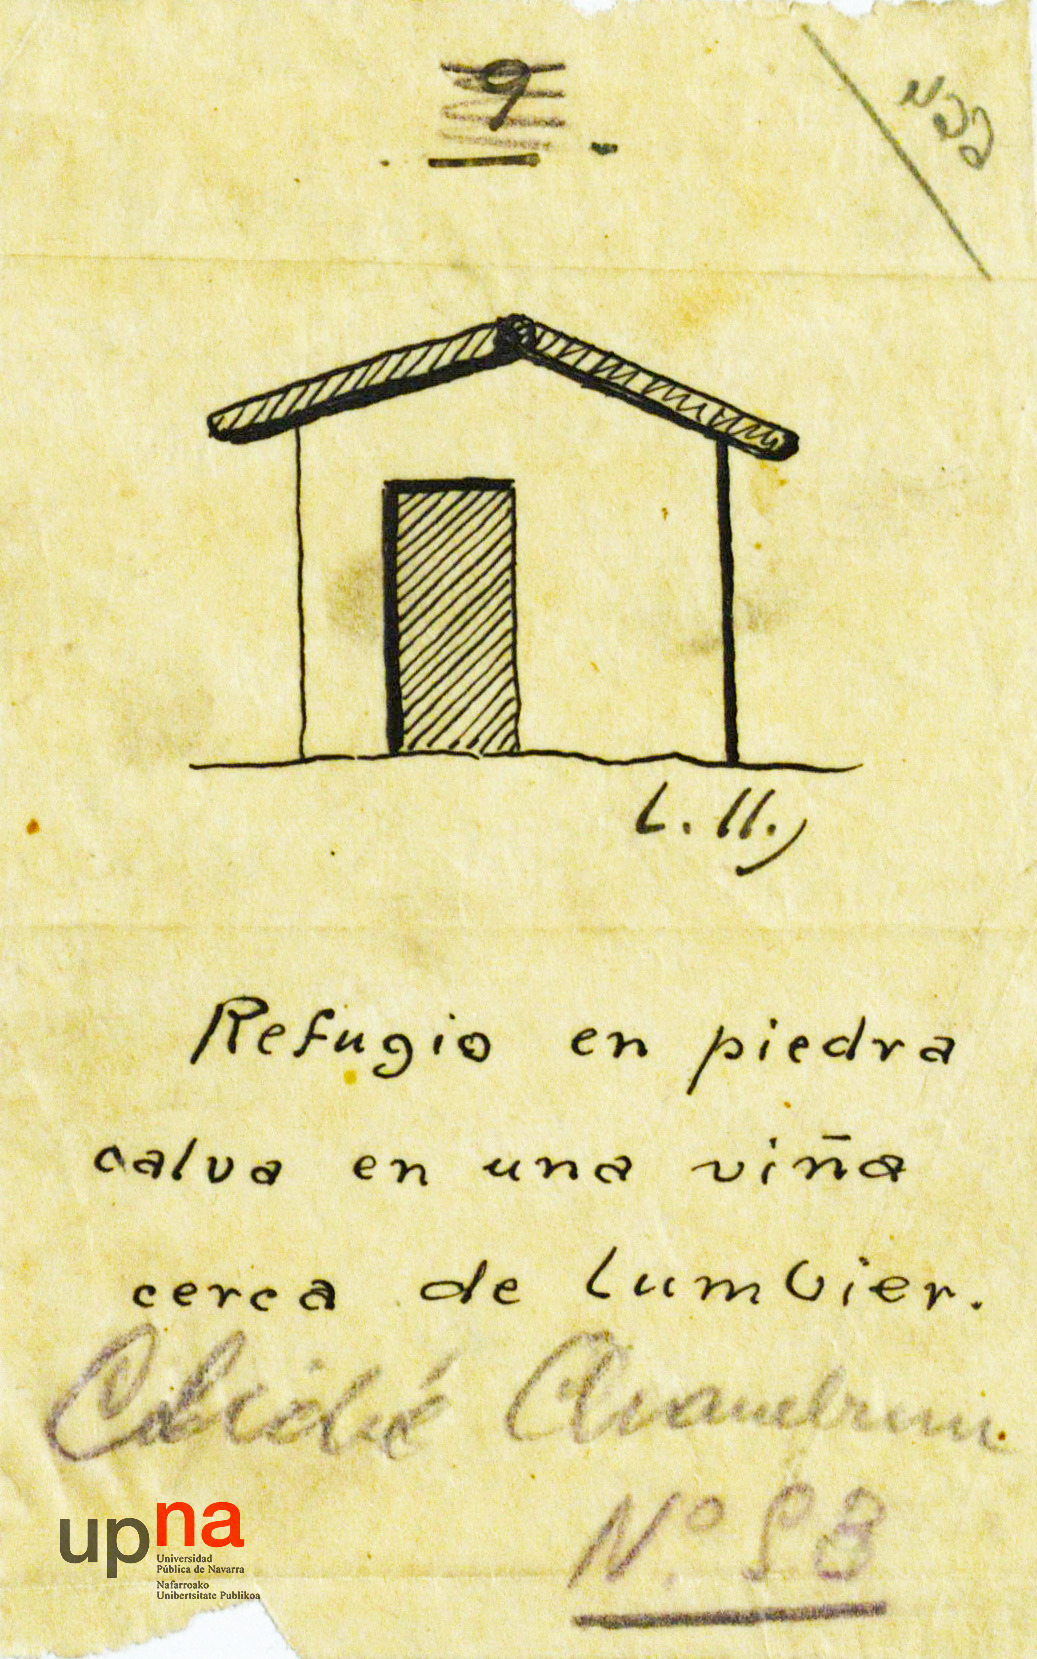 9
L. Ll.
Refugio en piedra
calva en una viña
cerca de Lumbier.
Cliché
Nº
upna
Universidad
Pública de Navarra
Nafarroako
Unibertsitate Publikoa